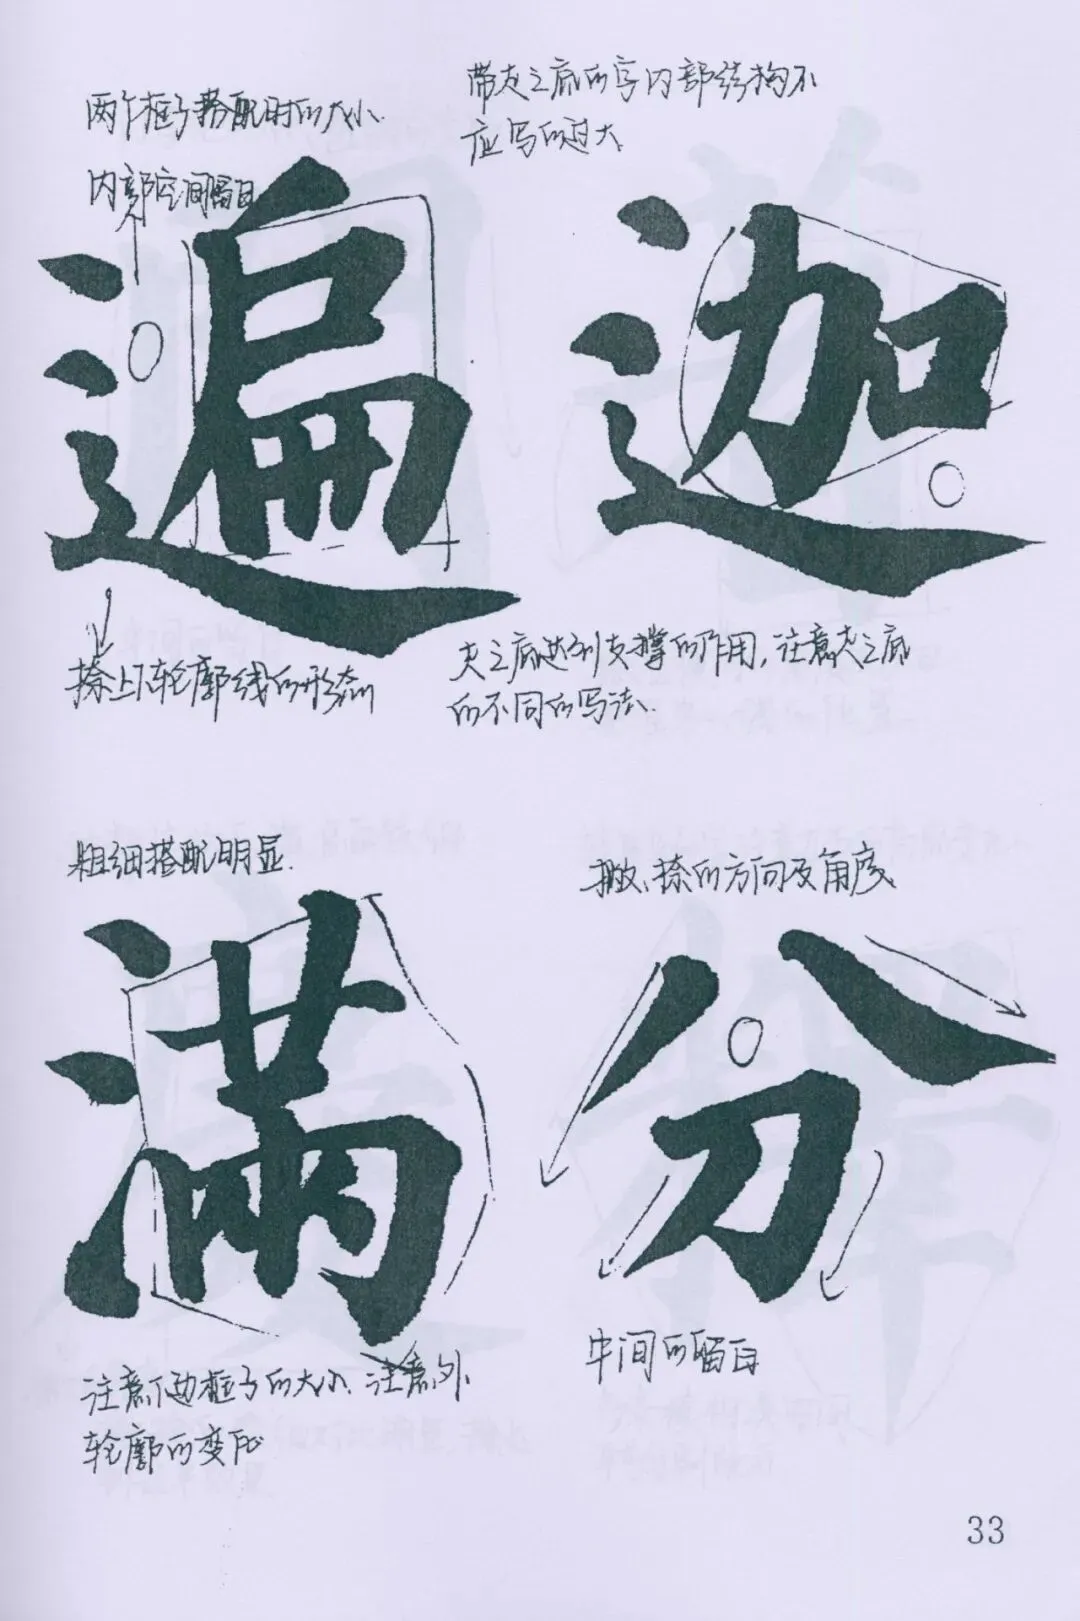 两个框子搭配时的大小.
内部空间留白
遍
捺上下轮廓线的形态
带走之底的字内部结构不
应写的过大
迦
走之底达到支撑的作用,注意走之底
的不同的写法.
粗细搭配明显.
满
注意下边框子的大小. 注意外
轮廓的变化
撇、捺的方向及角度
分
中间的留白
33